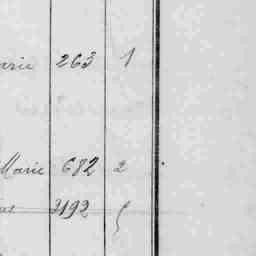 arie 263 1
Marie 682 2
3192